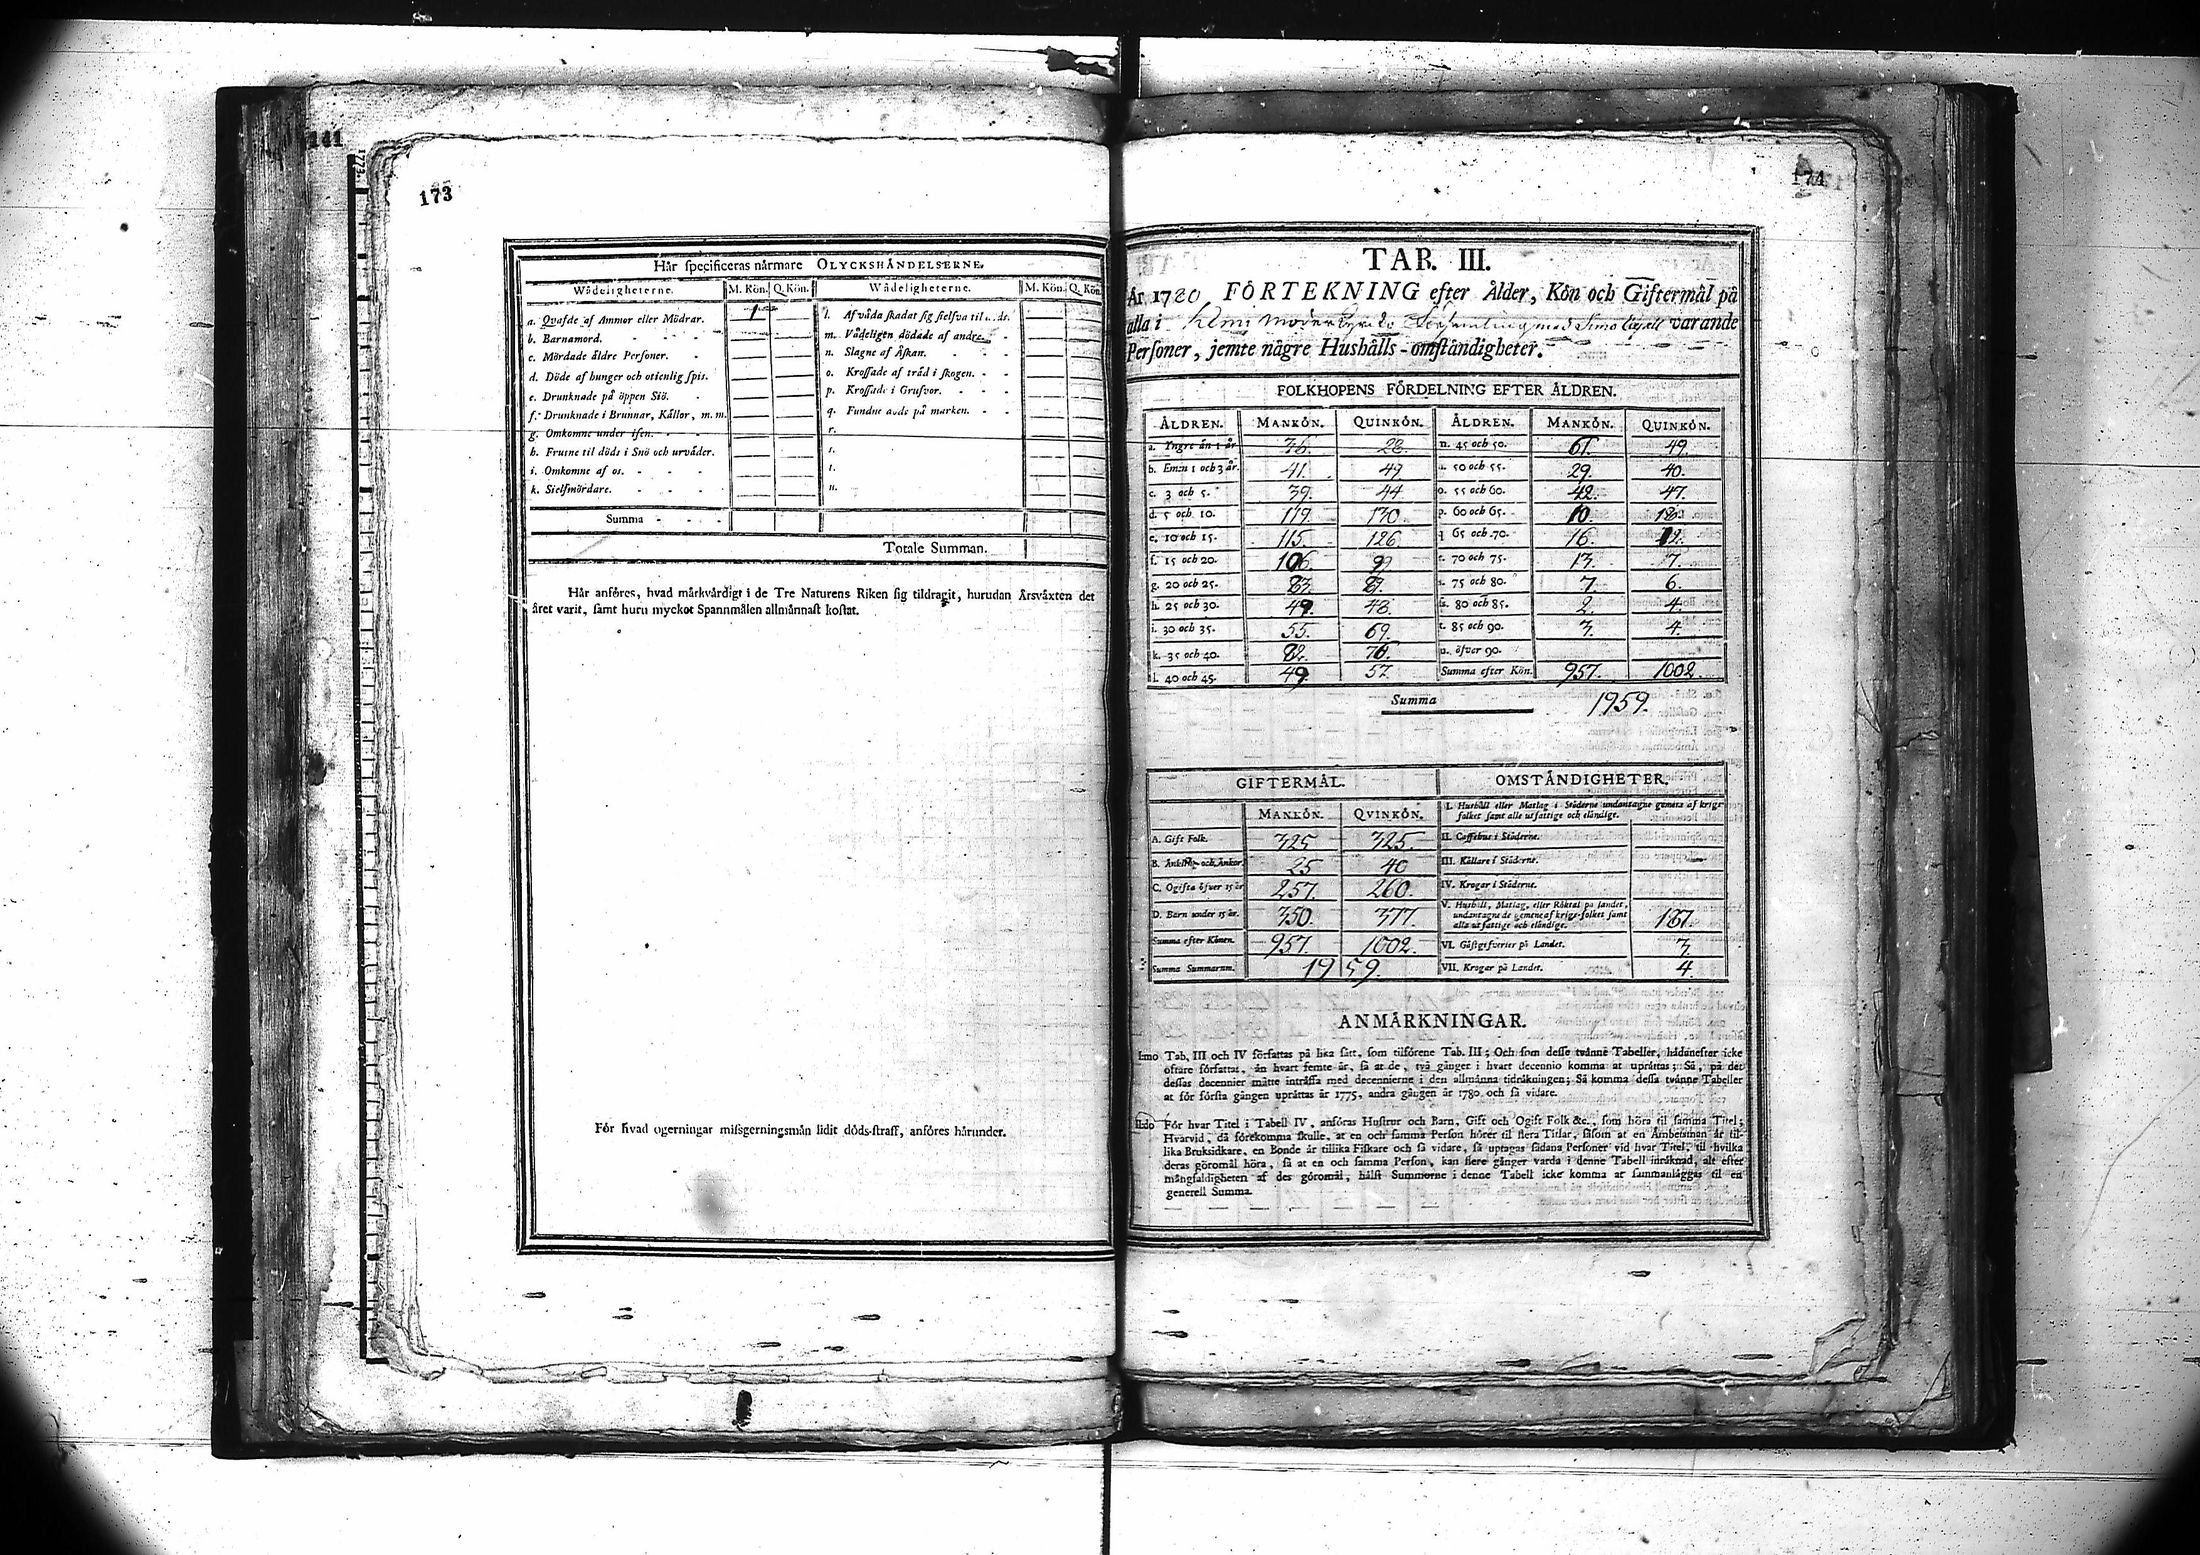 141
1773.
173
Här specificeras närmare OLYCKSHÄNDELSERNE.
Wådeligheterne. M. Kön. Q. Kön. Wådeligheterne. M. Kön. Q. Kön.
a. Qvafde af Ammor eller Mödrar. 1 l. Af våda skadat sig sielfva til
b. Barnamord. m. Vådeligen dödade af andre.
c. Mördade äldre Personer. n. Slagne af Åskan.
d. Döde af hunger och otienlig spis. o. Krossade af träd i skogen.
e. Drunknade på öppen Siö. p. Krossade i Grufvor.
f. Drunknade i Brunnar, Källor, m. m. q. Fundne döde på marken.
g. Omkomne under isen. r.
h. Frusne til döds i Snö och urväder. s.
i. Omkomne af os. t.
k. Sielfmördare. u.
Summa
Totale Summan.
Här anföres, hvad märkvärdigt i de Tre Naturens Riken sig tildragit, hurudan Årsväxten det
året varit, samt huru mycket Spannmålen allmännast kostat.
För hvad ogerningar missgerningsmän lidit döds-straff, anföres härunder.
174
TAB. III.
År 1780 FÖRTEKNING efter Ålder, Kön och Giftermål på
alla i Kemi Moderkyrko Församling med Simo Capell varande
Personer, jemte någre Hushålls-omständigheter.
FOLKHOPENS FÖRDELNING EFTER ÅLDREN.
ÅLDREN. MANKÖN. QUINKÖN. ÅLDREN. MANKÖN. QUINKÖN.
a. Yngre än 1 år 36. 28. n. 45 och 50. 61. 49.
b. Emn 1 och 3 år. 41. 49. 50 och 55. 29. 40.
c. 3 och 5. 39. 44 o. 55 och 60. 42. 47.
d. 5 och 10. 119. 130. p. 60 och 65. 10. 18.
e. 10 och 15. 115. 126 q 65 och 70. 16. 12.
f. 15 och 20. 106. 99 r. 70 och 75. 13. 7.
g. 20 och 25. 83. 89. s. 75 och 80. 7. 6.
h. 25 och 30. 49. 48. ss. 80 och 85. 2. 4.
i. 30 och 35. 55. 69. t. 85 och 90. 3. 4.
k. 35 och 40. 82. 76. u. öfver 90.
l. 40 och 45. 49. 57. Summa efter Kön. 957. 1002.
Summa 1959.
GIFTERMÅL. OMSTÄNDIGHETER.
MANKÖN. QVINKÖN. I. Hushåll eller Matlag i Städerne undantagne gemena af krigs-
folket samt alle utfattige och eländige.
A. Gift Folk. 325 325. II. Caffehus i Städerne.
B. Änkling och Änkor 25 40 III. Källare i Städerne.
C. Ogifta öfver 15 år 257. 260. IV. Krogar i Städerne.
D. Barn under 15 år. 350. 377. V. Hushåll, Matlag, eller Röktal på landet,
undantagne de gemene af krigs-folket samt
alla utfattige och eländige. 187.
Summa efter Könen. 957. 1002. VI. Gästgifverier på Landet. 3.
Summa Summarum. 1959. VII. Krogar på Landet. 4.
ANMÄRKNINGAR.
Imo Tab. III och IV författas på lika sätt, som tilförene Tab. III; Och som desse tvänne Tabeller, hädanefter icke
oftare författat, än hvart femte år, så at de, två gånger i hvart decennio komma at uprättas; Så, på det
dessas decennier måtte inträffa med decennierne i den allmänna tidräkningen; Så komma dessa tvänne Tabeller
at för första gången uprättas år 1775, andra gången år 1780 och så vidare.
IIdo För hvar Titel i Tabell IV, anföras Hustrur och Barn, Gift och Ogift Folk &c., som höra til samma Titel;
Hvarvid, då förekomma skulle, at en och samma Person hörer til flera Titlar, såsom at en Ämbetsman är til-
lika Bruksidkare, en Bonde är tillika Fiskare och så vidare, så uptagas sådana Personer vid hvar Titel, til hvilka
deras göromål höra, så at en och samma Person, kan flere gånger varda i denne Tabell inräknad, alt efter
mångfaldigheten af des göromål, hälst Summorne i denne Tabell icke komma at sammanläggas til en
generell Summa.